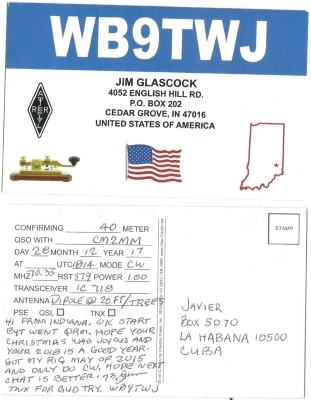 WB9TWJ
JIM GLASCOCK
4052 ENGLISH HILL RD.
P.O. BOX 202
CEDAR GROVE, IN 47016
UNITED STATES OF AMERICA
ARRL
CONFIRMING 40 METER
QSO WITH CM2MM
DAY 28 MONTH 12 YEAR 17
AT UTC 1814 MODE CW
MHZ RST 579 POWER 100
TRANSCEIVER IC 718
ANTENNA DIPOLE @ 20 FT/TREES
PSE QSL TNX
HI FROM INDIANA. OK START
BUT WENT QRM. HOPE YOUR
CHRISTMAS WAS JOYOUS AND
YOUR 2018 IS A GOOD YEAR.
GOT MY RIG MAY OF 2015
AND ONLY DO CW. HOPE NEXT
CHAT IS BETTER. 73
TNX FOR GUD TRY. WB9TWJ
STAMP
JAVIER
BOX 5070
LA HABANA 10500
CUBA